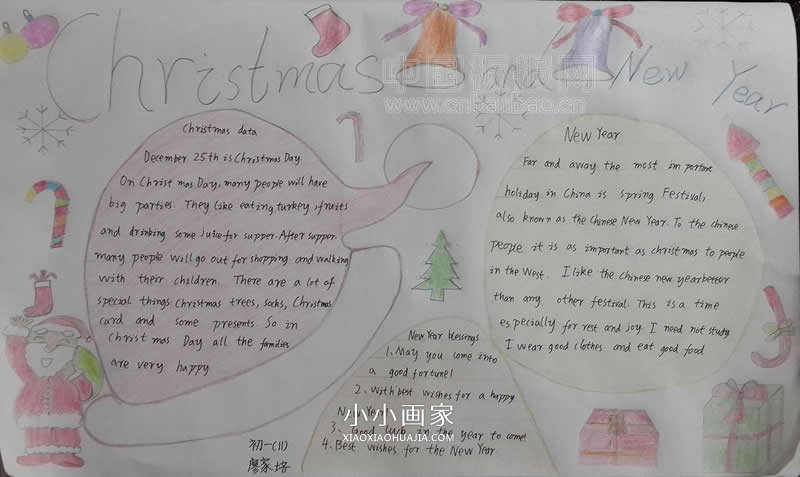 Christmas and New Year
Christmas data
December 25th is Christmas Day.
On Christmas Day, many people will have
big parties. They like eating turkey, fruits
and drinking some juice for supper. After supper.
many people will go out for shopping and walking
with their children. There are a lot of
special things Christmas trees, socks, Christmas
card and some presents. So in
Christmas Day all the families
are very happy
New Year
Far and away the most important
holiday in China is Spring Festival,
also known as the Chinese New Year. To the chinese
people it is as important as christmas to people
in the West. I like the Chinese new year better
than any other festival. This is a time
especially for rest and joy. I need not study
I wear good clothes and eat good food
New Year blessings
1. May you come into
a good fortune!
2. With best wishes for a happy
New Year
3. Good luck in the year to come!
4. Best wishes for the New Year
初一(11)
小小画家
XIAOXIAOHUAJIA.COM